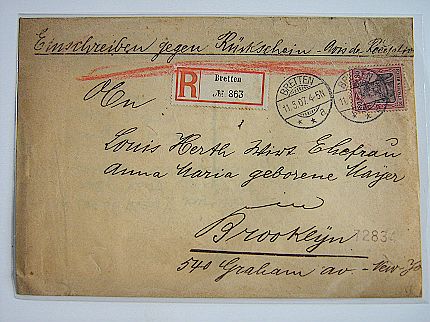 Einschreiben gegen Rückschein - Avis de Réception
R Bretten
No. 863
BRETTEN
11.5.07.4-5N
* a
An
Louis Herth Wirt Ehefrau
Anna Maria geborene Mayer
in
Brooklijn
72834
540 Graham av. New-Yo